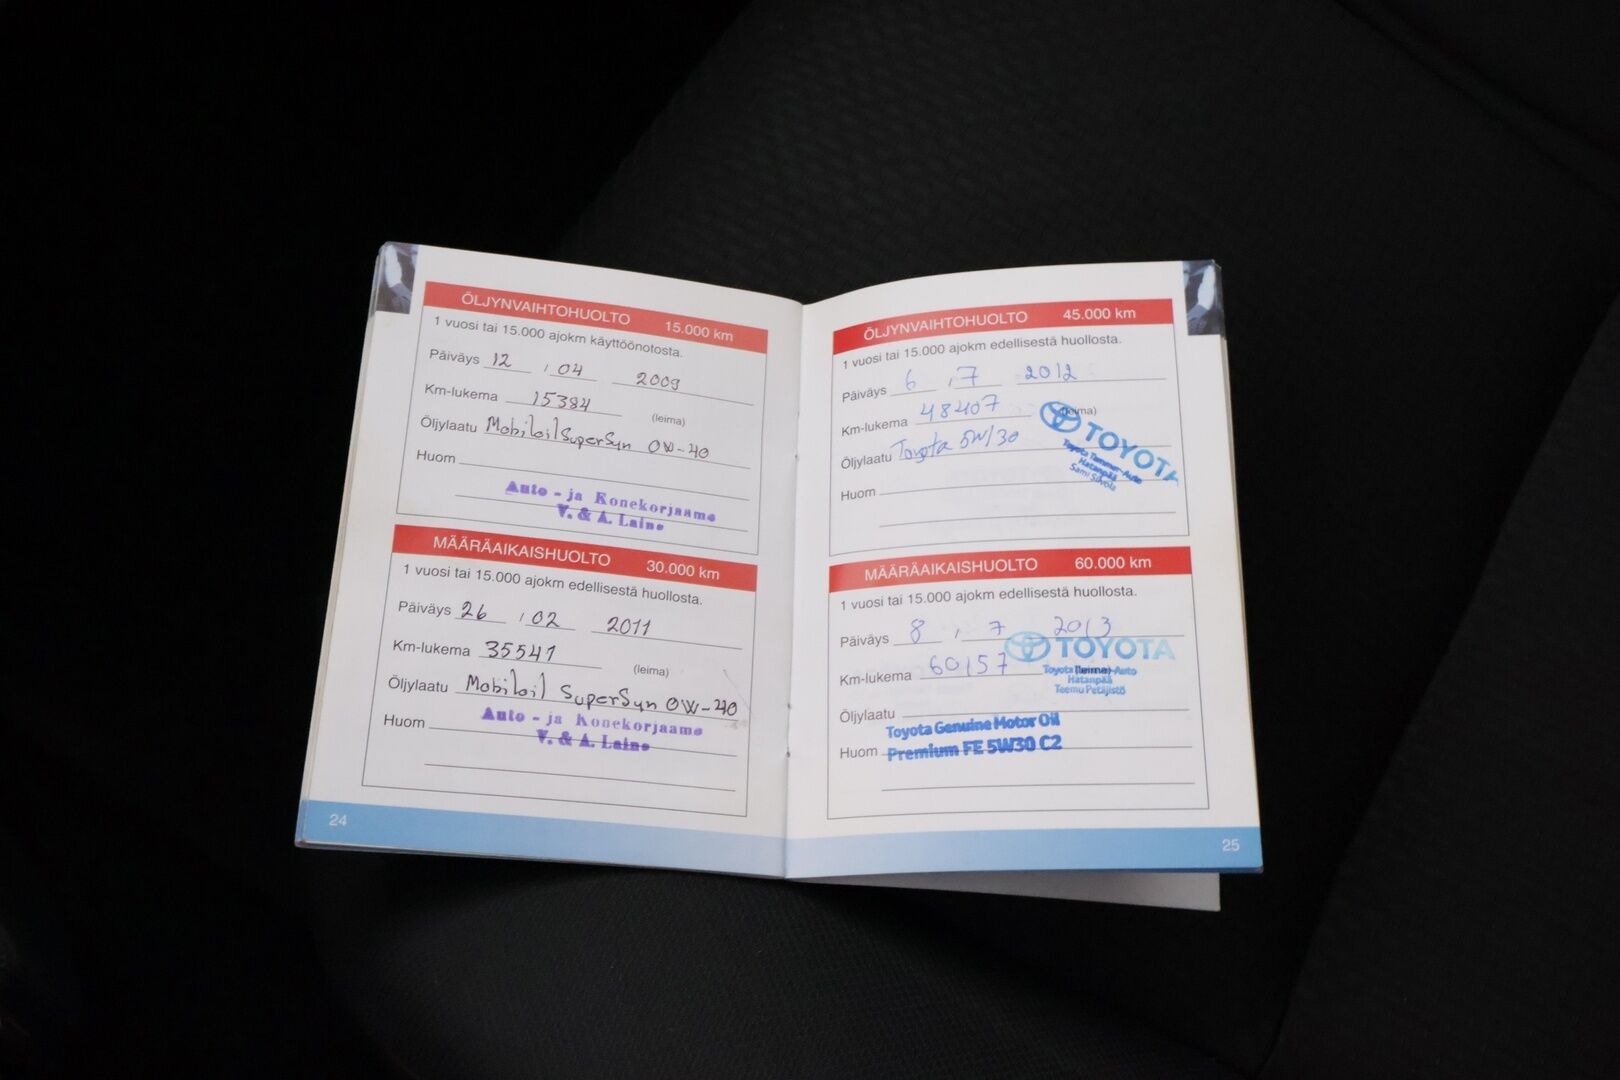 ÖLJYNVAIHTOHUOLTO 15.000 km
1 vuosi tai 15.000 ajokm käyttöönotosta.
Päiväys 12 . 04 2009
Km-lukema 15384
(leima)
Öljylaatu Mobiloil SuperSyn 0W-40
Huom
Auto - ja Konekorjaamo
V. & A. Laine
MÄÄRÄAIKAISHUOLTO 30.000 km
1 vuosi tai 15.000 ajokm edellisestä huollosta.
Päiväys 26 . 02 2011
Km-lukema 35541
(leima)
Öljylaatu Mobiloil SuperSyn 0W-40
Huom
Auto - ja Konekorjaamo
V. & A. Laine
24
ÖLJYNVAIHTOHUOLTO 45.000 km
1 vuosi tai 15.000 ajokm edellisestä huollosta.
Päiväys 6 . 7 2012
Km-lukema 48407
(leima)
TOYOTA
Öljylaatu Toyota 5W/30
Toyota Tammer-Auto
Hatanpää
Sami Siivola
Huom
MÄÄRÄAIKAISHUOLTO 60.000 km
1 vuosi tai 15.000 ajokm edellisestä huollosta.
Päiväys 8 . 7 2013
TOYOTA
Km-lukema 60157
(leima)
Toyota Tammer-Auto
Hatanpää
Teemu Petäjistö
Öljylaatu
Toyota Genuine Motor Oil
Huom Premium FE 5W30 C2
25